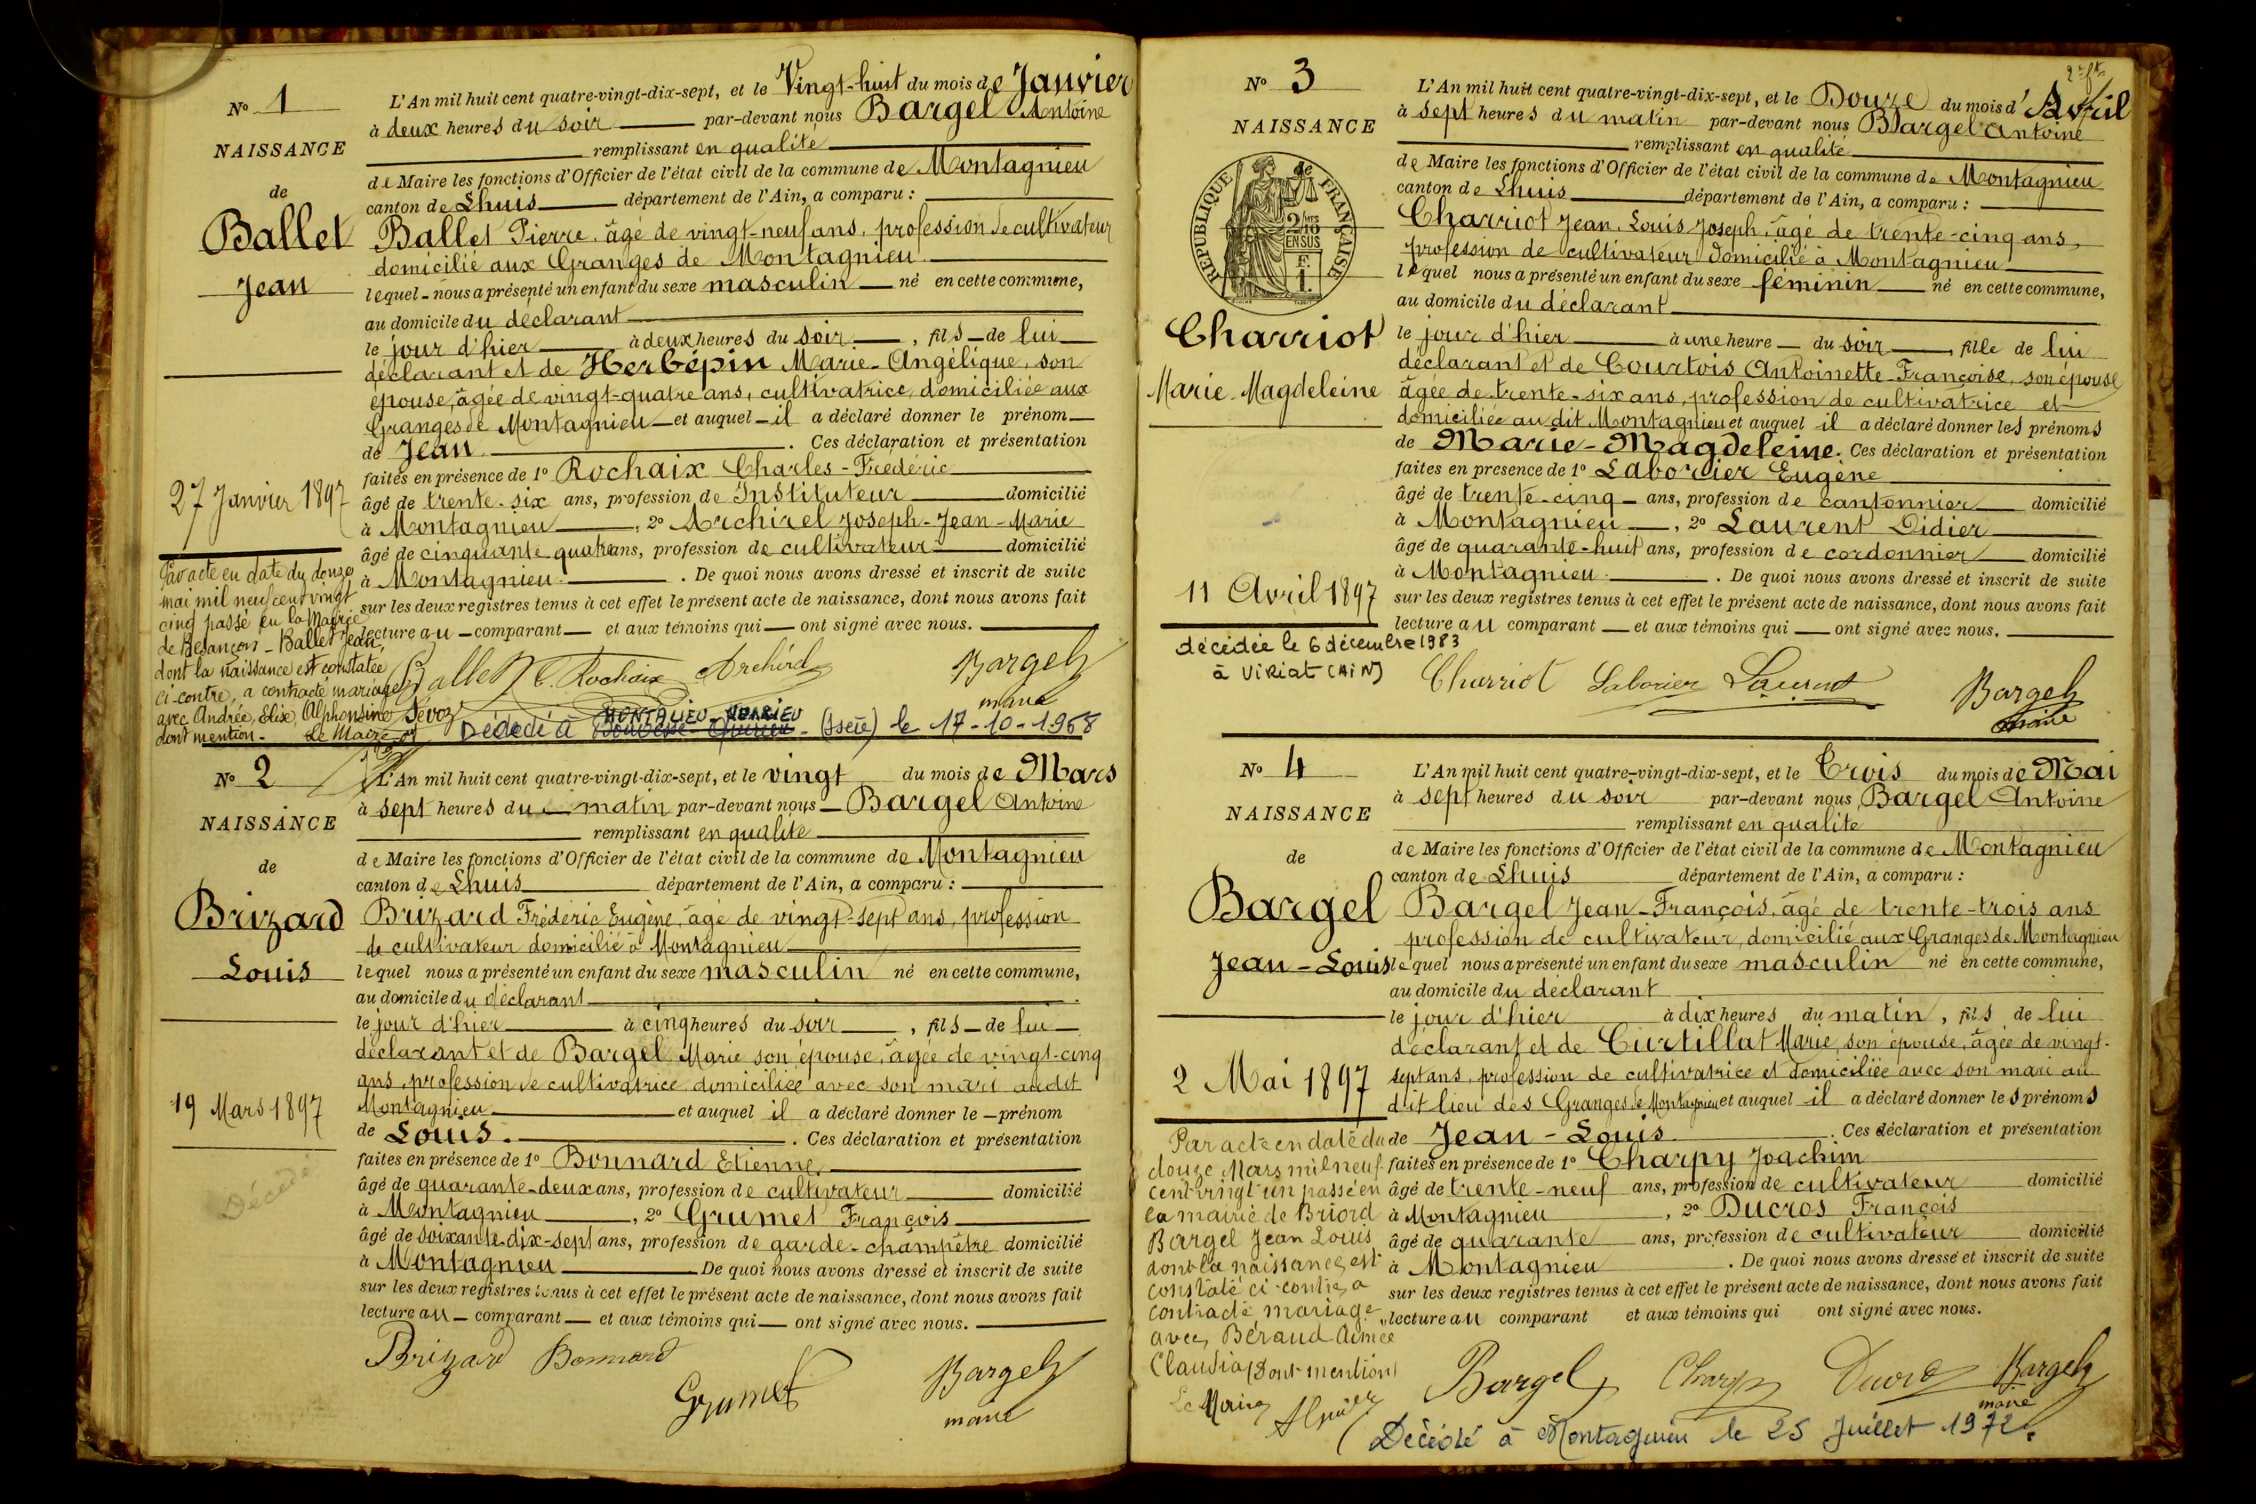 Nº 1
NAISSANCE
de
Ballet
Jean
27 Janvier 1897
Par acte en date du douze
mai mil neuf cent vingt
cinq passé en la Mairie
de Besançon - Ballet Jean,
dont la naissance est constatée
ci-contre, a contracté mariage
avec Andrée, Elise, Alphonsine Sevoz
dont mention.
Le Maire
L'An mil huit cent quatre-vingt-dix-sept, et le Vingt-huit du mois de Janvier
à deux heures du soir par-devant nous Bargel Antoine
remplissant en qualité
de Maire les fonctions d'Officier de l'état civil de la commune de Montagnieu
canton de Lhuis département de l'Ain, a comparu :
Ballet Pierre, âgé de vingt-neuf ans, profession de cultivateur
domicilié aux Granges de Montagnieu
lequel nous a présenté un enfant du sexe masculin né en cette commune,
au domicile du déclarant
le jour d'hier à deux heures du soir, fils de lui
déclarant et de Herbépin Marie-Angélique, son
épouse, âgée de vingt-quatre ans, cultivatrice, domiciliée aux
Granges de Montagnieu et auquel il a déclaré donner le prénom
de Jean. Ces déclaration et présentation
faites en présence de 1º Rochaix Charles-Frédéric
âgé de trente-six ans, profession de Instituteur domicilié
à Montagnieu, 2º Archirel Joseph-Jean-Marie
âgé de cinquante quatre ans, profession de cultivateur domicilié
à Montagnieu. De quoi nous avons dressé et inscrit de suite
sur les deux registres tenus à cet effet le présent acte de naissance, dont nous avons fait
lecture au comparant et aux témoins qui ont signé avec nous.
Ballet C. Rochaix Archirel Bargel
maire
MONTALIEU-VERCIEU
Décédé à (Isère) le 17-10-1968
Nº 2
NAISSANCE
de
Brizard
Louis
19 Mars 1897
Décédé
L'An mil huit cent quatre-vingt-dix-sept, et le vingt du mois de Mars
à sept heures du matin par-devant nous Bargel Antoine
remplissant en qualité
de Maire les fonctions d'Officier de l'état civil de la commune de Montagnieu
canton de Lhuis département de l'Ain, a comparu :
Brizard Frédéric Eugène, âgé de vingt-sept ans, profession
de cultivateur domicilié à Montagnieu
lequel nous a présenté un enfant du sexe masculin né en cette commune,
au domicile du déclarant
le jour d'hier à cinq heures du soir, fils de lui
déclarant et de Bargel Marie son épouse, âgée de vingt-cinq
ans, profession de cultivatrice domiciliée avec son mari audit
Montagnieu et auquel il a déclaré donner le prénom
de Louis. Ces déclaration et présentation
faites en présence de 1º Bonnard Etienne,
âgé de quarante-deux ans, profession de cultivateur domicilié
à Montagnieu, 2º Grumet François
âgé de soixante-dix-sept ans, profession de garde-champêtre domicilié
à Montagnieu De quoi nous avons dressé et inscrit de suite
sur les deux registres tenus à cet effet le présent acte de naissance, dont nous avons fait
lecture au comparant et aux témoins qui ont signé avec nous.
Brizard Bonnard Grumet Bargel
maire
Nº 3
NAISSANCE
de
RÉPUBLIQUE FRANÇAISE
2/10
EN SUS
Charriot
Marie-Magdeleine
11 Avril 1897
décédée le 6 décembre 1983
à VIRIAT (AIN)
L'An mil huit cent quatre-vingt-dix-sept, et le Douze du mois d'Avril
à sept heures du matin par-devant nous Bargel Antoine
remplissant en qualité
de Maire les fonctions d'Officier de l'état civil de la commune de Montagnieu
canton de Lhuis département de l'Ain, a comparu :
Charriot Jean, Louis Joseph, âgé de trente-cinq ans,
profession de cultivateur domicilié à Montagnieu
lequel nous a présenté un enfant du sexe féminin né en cette commune,
au domicile du déclarant
le jour d'hier à une heure du soir, fille de lui
déclarant et de Courtois Antoinette-Françoise, son épouse
âgée de trente-six ans, profession de cultivatrice et
domiciliée au dit Montagnieu et auquel il a déclaré donner les prénoms
de Marie-Magdeleine. Ces déclaration et présentation
faites en présence de 1º Laborier Eugène
âgé de trente-cinq ans, profession de cantonnier domicilié
à Montagnieu, 2º Laurent Didier
âgé de quarante-huit ans, profession de cordonnier domicilié
à Montagnieu. De quoi nous avons dressé et inscrit de suite
sur les deux registres tenus à cet effet le présent acte de naissance, dont nous avons fait
lecture au comparant et aux témoins qui ont signé avec nous.
Charriot Laborier Laurent Bargel
maire
Nº 4
NAISSANCE
de
Bargel
Jean-Louis
2 Mai 1897
Par acte en date du
douze Mars mil neuf
cent vingt un passé en
la mairie de Briord
Bargel Jean Louis
dont la naissance est
constaté ci-contre, a
contracté mariage
avec Béraud Aimée
Claudia Dont mention
Le Maire
L'An mil huit cent quatre-vingt-dix-sept, et le Trois du mois de Mai
à sept heures du soir par-devant nous Bargel Antoine
remplissant en qualité
de Maire les fonctions d'Officier de l'état civil de la commune de Montagnieu
canton de Lhuis département de l'Ain, a comparu :
Bargel Jean-François, âgé de trente-trois ans
profession de cultivateur, domicilié aux Granges de Montagnieu
lequel nous a présenté un enfant du sexe masculin né en cette commune,
au domicile du déclarant
le jour d'hier à dix heures du matin, fils de lui
déclarant et de Curtillat Marie, son épouse, âgée de vingt-
sept ans, profession de cultivatrice et domiciliée avec son mari au
dit lieu des Granges de Montagnieu et auquel il a déclaré donner les prénoms
de Jean-Louis. Ces déclaration et présentation
faites en présence de 1º Charpy Joachim
âgé de trente-neuf ans, profession de cultivateur domicilié
à Montagnieu, 2º Ducros François
âgé de quarante ans, profession de cultivateur domicilié
à Montagnieu. De quoi nous avons dressé et inscrit de suite
sur les deux registres tenus à cet effet le présent acte de naissance, dont nous avons fait
lecture au comparant et aux témoins qui ont signé avec nous.
Bargel Charpy Ducros Bargel
maire
Décédé à Montagnieu le 25 Juillet 1972.